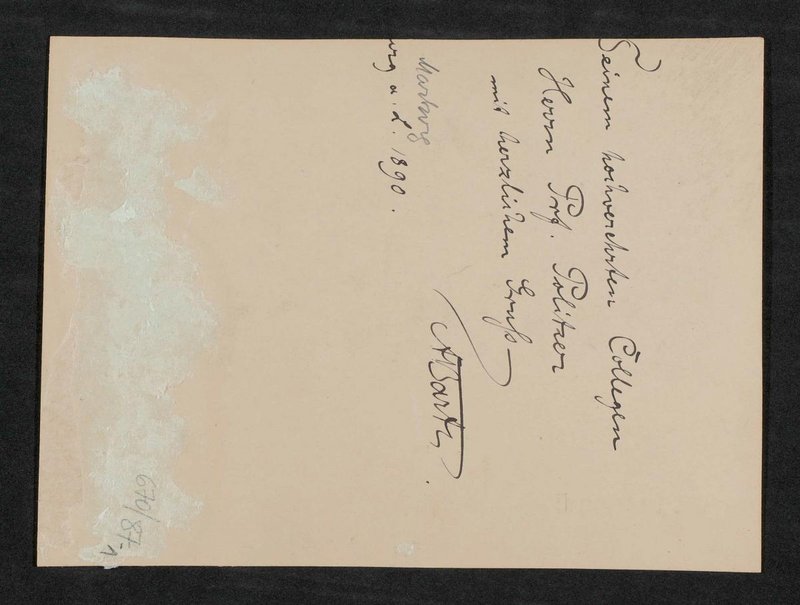 Seinem hochverehrten Collegen
Herrn Prf. Politzer
mit herzlichem Gruß
ABarth.
Marburg
urg a. L. 1890.
670/87-1